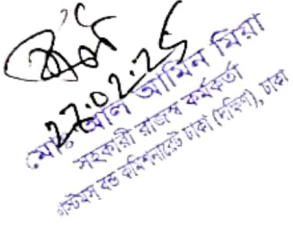 ২৭.০২.২৫
মোঃ আল আমিন মিয়া
সহকারী রাজস্ব কর্মকর্তা
কাস্টমস বন্ড কমিশনারেট ঢাকা (দক্ষিণ), ঢাকা